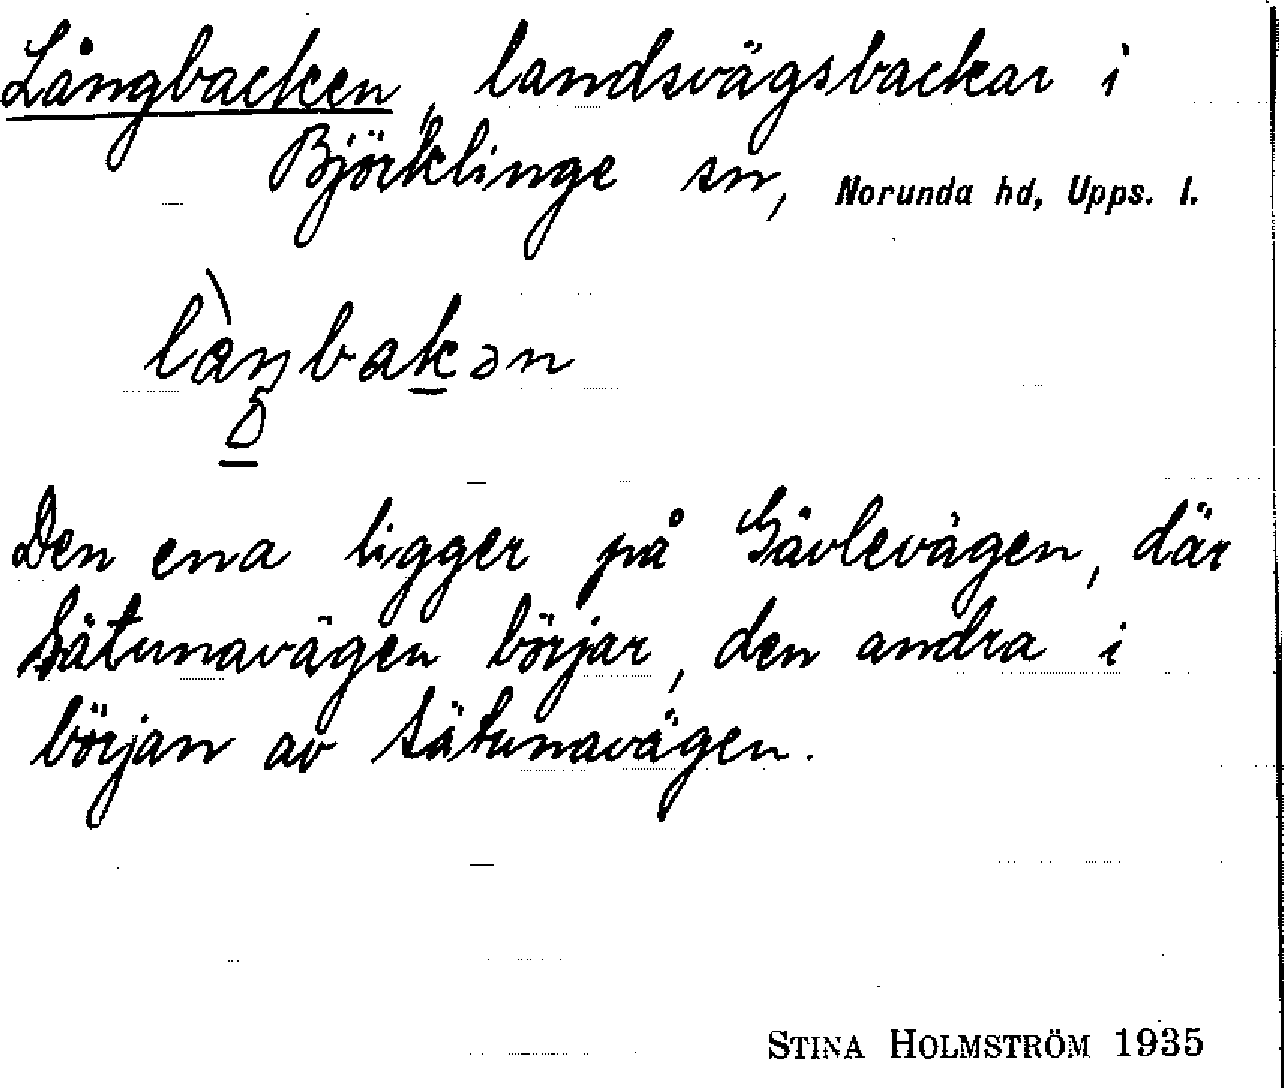 Långbacken, landsvägsbackar i
Björklinge sn, Norunda hd, Upps. l.
Den ena ligger på Gävlevägen, där
Sätunavägen börjar, den andra i
början av Sätunavägen.
STINA HOLMSTRÖM 1935